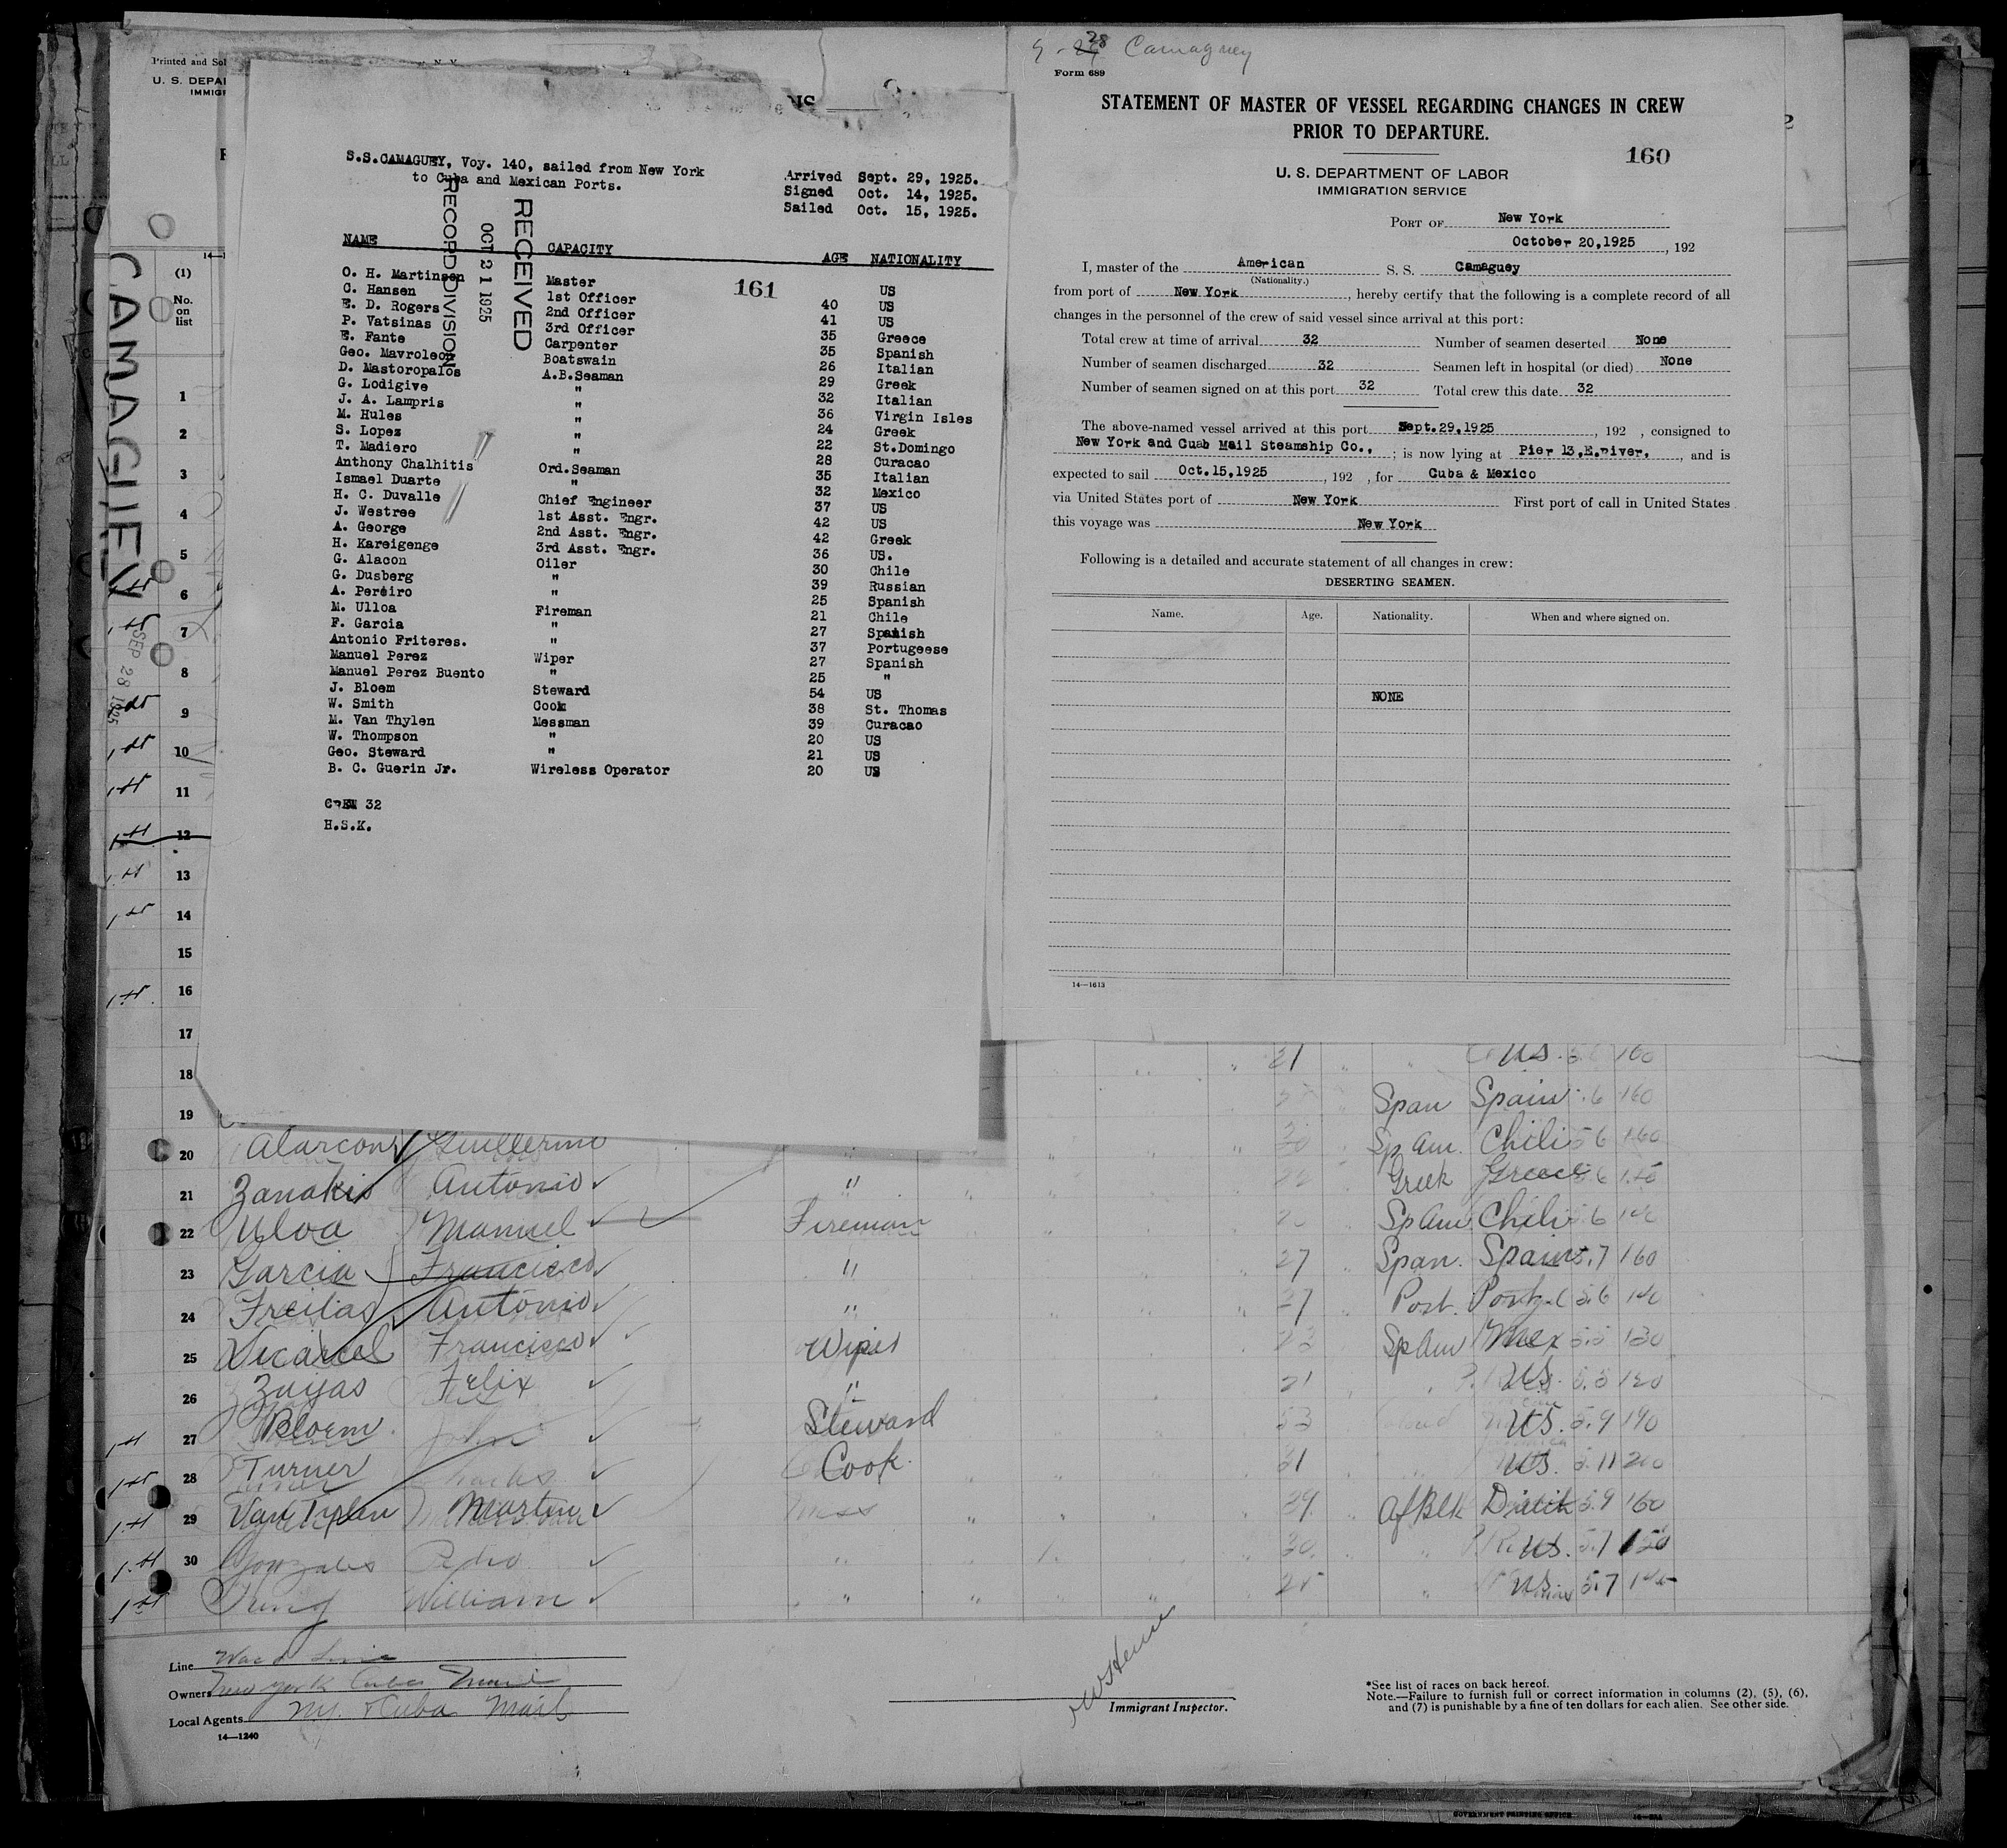 Printed and Sol
U. S. DEPAR
IMMIGR
S.S.CAMAGUEY, Voy. 140, sailed from New York
to Cuba and Mexican Ports.
Arrived Sept. 29, 1925.
Signed Oct. 14, 1925.
Sailed Oct. 15, 1925.
RECEIVED
OCT 21 1925
RECORD DIVISION
161
NAME CAPACITY AGE NATIONALITY
O. H. Martinsen Master US
C. Hansen 1st Officer 40 US
E. D. Rogers 2nd Officer 41 US
P. Vatsinas 3rd Officer 35 Greece
E. Fante Carpenter 35 Spanish
Geo. Mavroleon Boatswain 26 Italian
D. Mastoropalos A.B.Seaman 29 Greek
G. Lodigive " 32 Italian
J. A. Lampris " 36 Virgin Isles
M. Hules " 24 Greek
S. Lopez " 22 St.Domingo
T. Madiero " 28 Curacao
Anthony Chalhitis Ord.Seaman 35 Italian
Ismael Duarte " 32 Mexico
H. C. Duvalle Chief Engineer 37 US
J. Westree 1st Asst. Engr. 42 US
A. George 2nd Asst. Engr. 42 Greek
H. Kareigenge 3rd Asst. Engr. 36 US.
G. Alacon Oiler 30 Chile
G. Dusberg " 39 Russian
A. Pereiro " 25 Spanish
M. Ulloa Fireman 21 Chile
F. Garcia " 27 Spanish
Antonio Friteres. " 37 Portugeese
Manuel Perez Wiper 27 Spanish
Manuel Perez Buento " 25 "
J. Bloem Steward 54 US
W. Smith Cook 38 St. Thomas
M. Van Thylen Messman 39 Curacao
W. Thompson " 20 US
Geo. Steward " 21 US
B. C. Guerin Jr. Wireless Operator 20 US
CREW 32
H.S.K.
28 Camaguey
Form 689
STATEMENT OF MASTER OF VESSEL REGARDING CHANGES IN CREW
PRIOR TO DEPARTURE.
160
U. S. DEPARTMENT OF LABOR
IMMIGRATION SERVICE
PORT OF New York
October 20,1925, 192
I, master of the American S. S. Camaguey
(Nationality.)
from port of New York, hereby certify that the following is a complete record of all
changes in the personnel of the crew of said vessel since arrival at this port:
Total crew at time of arrival 32 Number of seamen deserted None
Number of seamen discharged 32 Seamen left in hospital (or died) None
Number of seamen signed on at this port 32 Total crew this date 32
The above-named vessel arrived at this port Sept.29,1925, 192 , consigned to
New York and Cuab Mail Steamship Co., ; is now lying at Pier 13,E.river, , and is
expected to sail Oct.15,1925, 192 , for Cuba & Mexico
via United States port of New York First port of call in United States
this voyage was New York
Following is a detailed and accurate statement of all changes in crew:
DESERTING SEAMEN.
Name. Age. Nationality. When and where signed on.
NONE
14—1613
CAMAGUEY
SEP 28 1925
(1)
No.
on
list
1
2
3
4
5
6
7
8
9
10
11
12
13
14
15
16
17
18 21 US. 160
19 Span Spain 5.6 160
20 Alarcon Guillermo Sp Am. Chili 5 6 160
21 Zanakis Antonio " Greek Greece
22 Uloa Manuel Fireman Sp Am Chili
23 Garcia Francisco " 27 Span. Spain 5.7 160
24 Freitas Antonio " 37 Port. 5.6 140
25 Francisco Wiper Sp Am Mex 5.5 130
26 Zayas Felix " 21 US. 5.5 120
27 Bloem John Steward 53 US. 5.9 190
28 Turner Charles Cook US. 5.11 200
29 Van Tylan Martin Mess 39 Af Blk Dutch 5.9 160
30 Gonzales Pedro " 30 US. 5.7 150
William " US. 5.7
Line Ward Line
Owners New York Cuba Mail
Local Agents N.Y. & Cuba Mail
14—1240
Immigrant Inspector.
*See list of races on back hereof.
Note.—Failure to furnish full or correct information in columns (2), (5), (6),
and (7) is punishable by a fine of ten dollars for each alien. See other side.
GOVERNMENT PRINTING OFFICE